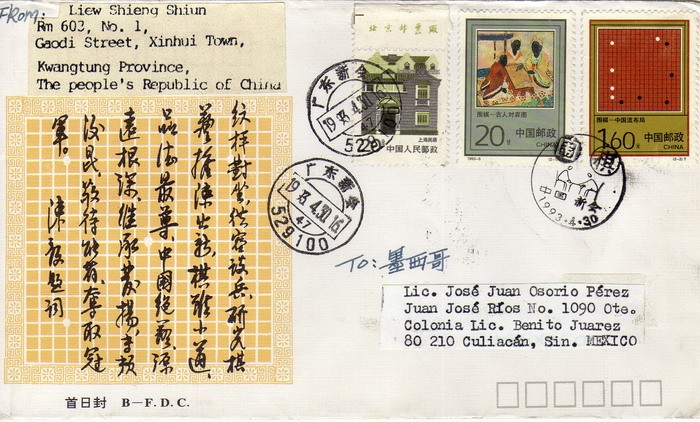 From:
Liew Shieng Shiun
Rm 603, No. 1,
Gaodi Street, Xinhui Town,
Kwangtung Province,
The people's Republic of China
北京邮票厂
上海民居
中国人民邮政
围棋—古人对弈图
20分 中国邮政
CHINA
1993-5
围棋—中国流布局
160分 中国邮政
CHINA
广东新会
1993.4.30
47
广东新会
1993.4.30.16
47
529100
围棋
中国 新会
1993.4.30
紋枰對坐,從容談兵,研究棋
藝,推陳出新,棋雖小道,
品德最尊,中國絕藝,源
遠根深,继承發揚,专赖
後昆,敬待能者,奪取冠
軍。
陳毅题词
TO: 墨西哥
Lic. José Juan Osorio Pérez
Juan José Ríos No. 1090 Ote.
Colonia Lic. Benito Juarez
80 210 Culiacán, Sin. MEXICO
首日封 B—F.D.C.